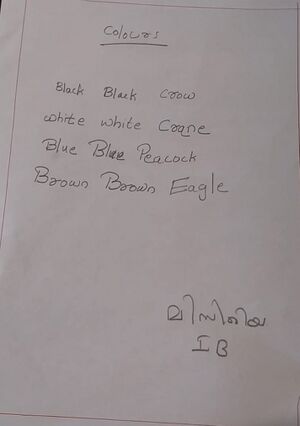 Colours
Black Black Crow
white white Crane
Blue Blue Peacock
Brown Brown Eagle
I B